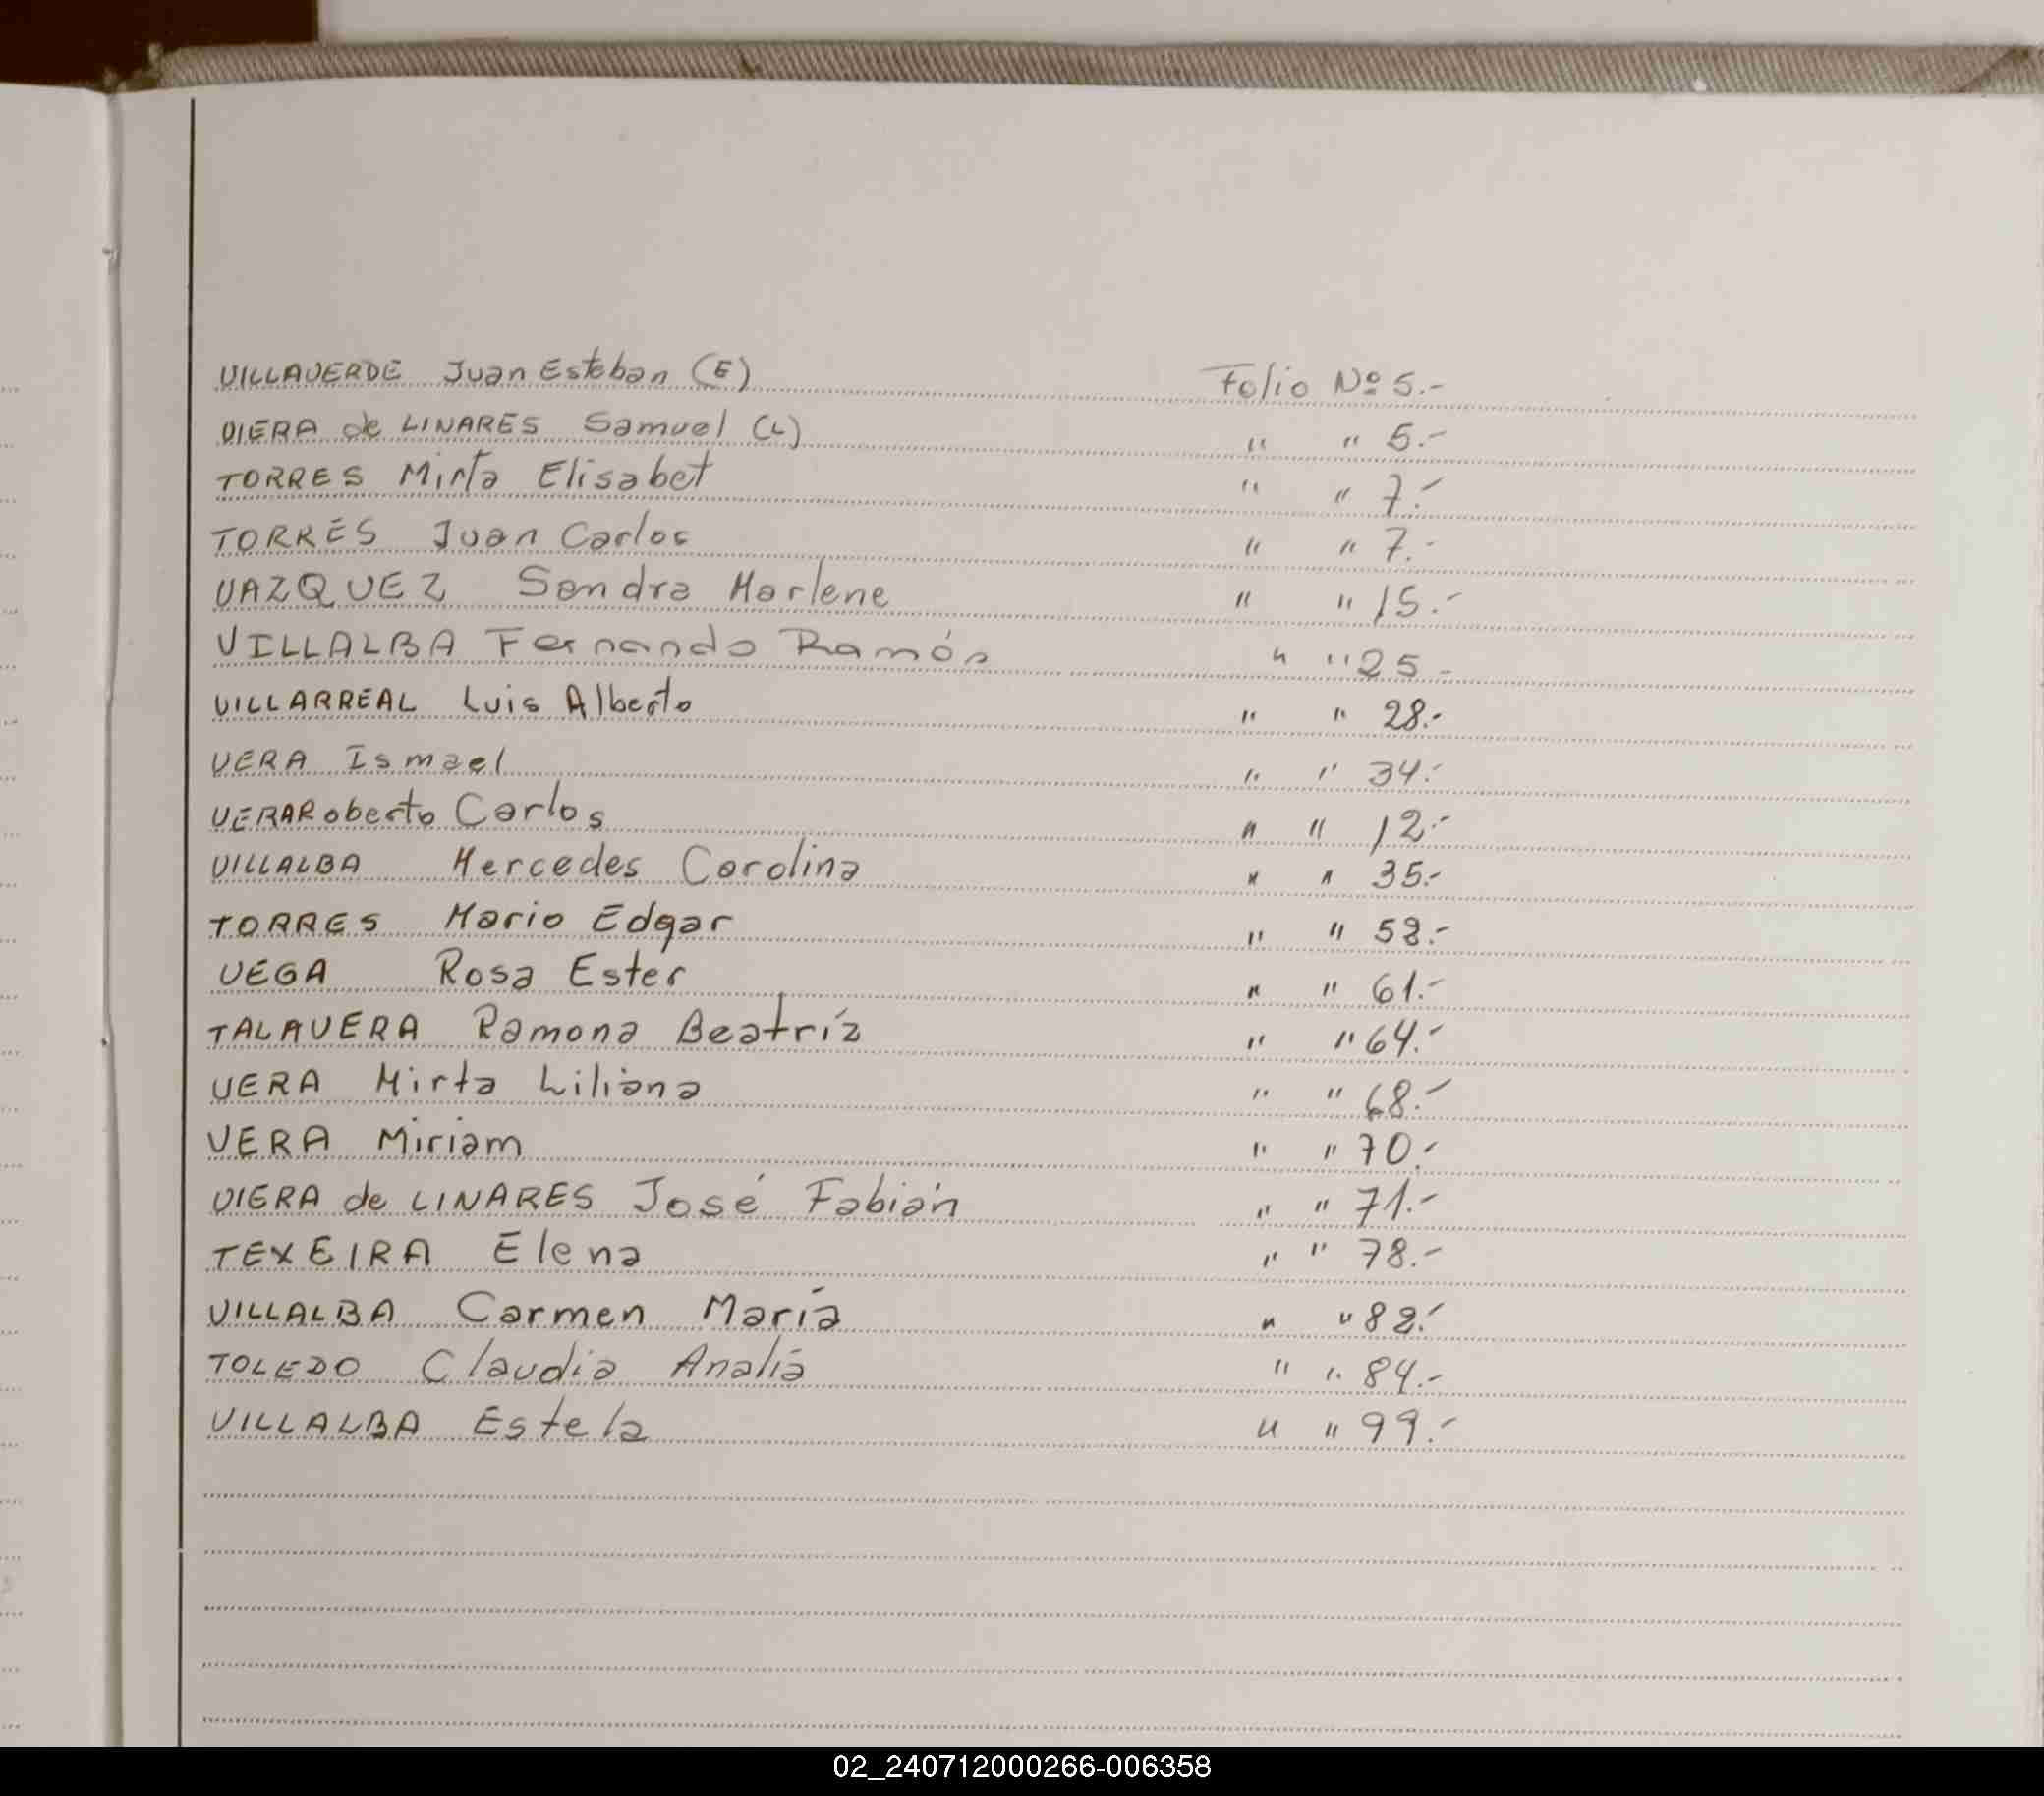 VILLAVERDE Juan Esteban (E) Folio Nº 5.-
VIERA de LINARES Samuel (L) " " 5.-
TORRES Mirta Elisabet " " 7.-
TORRES Juan Carlos " " 7.-
VAZQUEZ Sandra Marlene " " 15.-
VILLALBA Fernando Ramón " " 25-
VILLARREAL Luis Alberto " " 28.-
VERA Ismael " " 34.-
VERA Roberto Carlos " " 12.-
VILLALBA Mercedes Carolina " " 35.-
TORRES Mario Edgar " "
VEGA Rosa Ester " " 61.-
TALAVERA Ramona Beatríz " " 64.-
VERA Mirta Liliana " " 68.-
VERA Miriam " " 70.-
VIERA de LINARES José Fabián " " 71.-
TEXEIRA Elena " " 78.-
VILLALBA Carmen María " "
TOLEDO Claudia Analía " " 84.-
VILLALBA Estela " " 99.-
02_240712000266-006358